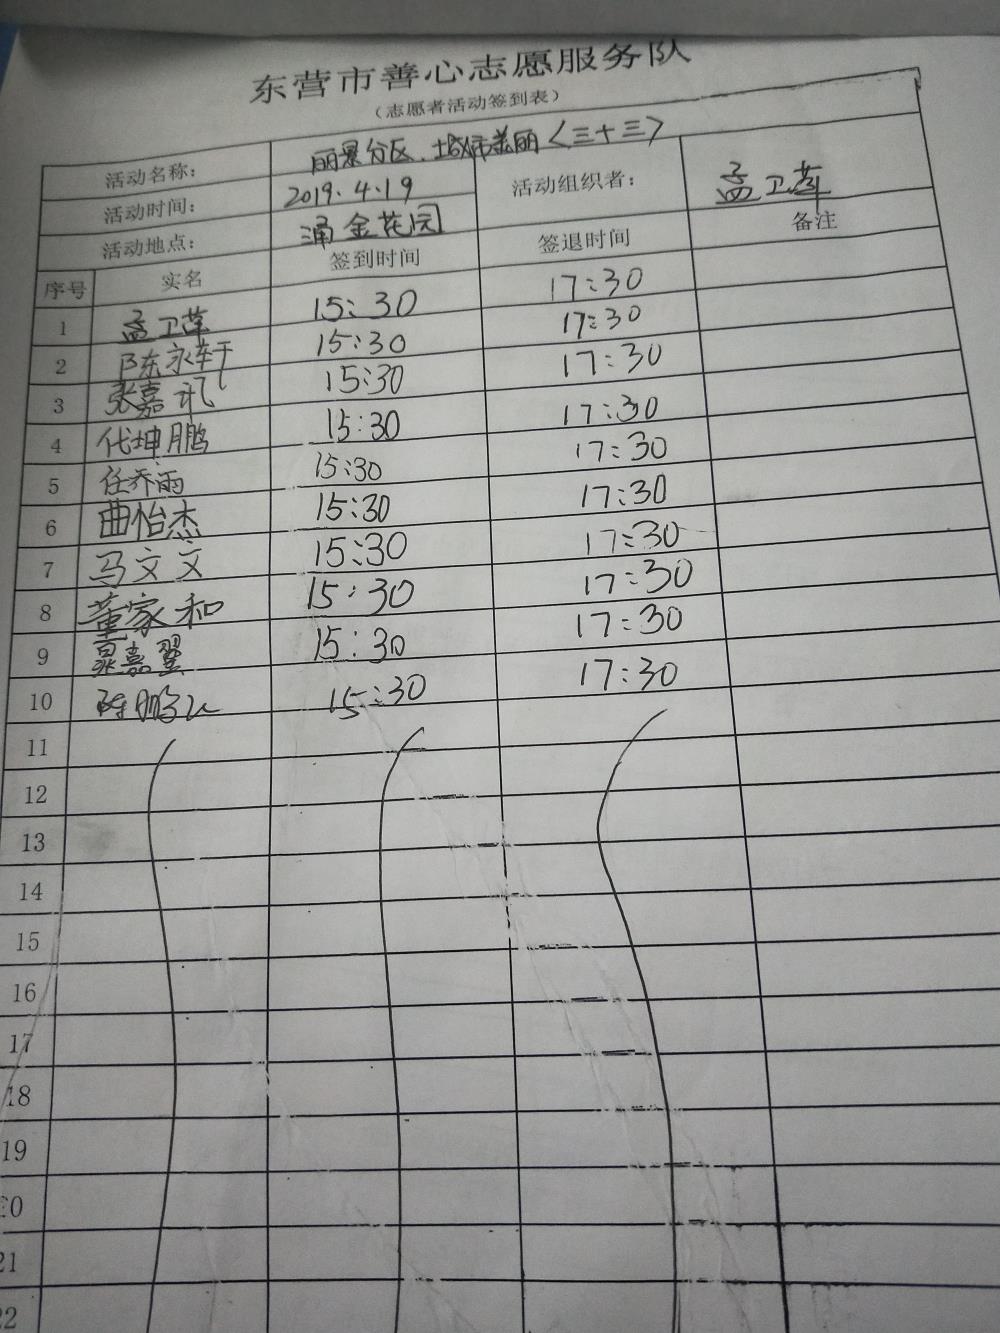 东营市善心志愿服务队
（志愿者活动签到表）
活动名称： 丽景分区、城市美丽〈三十三〉
活动时间： 2019.4.19 活动组织者： 孟卫莲
活动地点： 涌金花园
序号 实名 签到时间 签退时间 备注
1 孟卫莲 15:30 17:30
2 陈永轩 15:30 17:30
3 张嘉礼 15:30 17:30
4 代坤鹏 15:30 17:30
5 任乔雨 15:30 17:30
6 曲怡杰 15:30 17:30
7 马文文 15:30 17:30
8 董家和 15:30 17:30
9 晁嘉翌 15:30 17:30
10 陈鹏 15:30 17:30
11
12
13
14
15
16
17
18
19
20
21
22